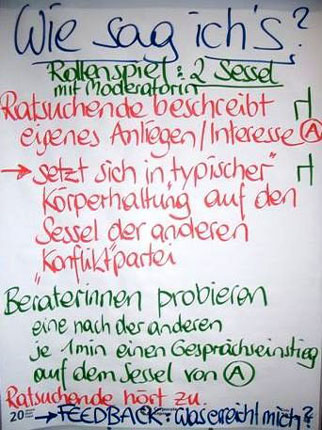 Wie sag ich's?
Rollenspiel: 2 Sessel
mit Moderatorin
Ratsuchende beschreibt
eigenes Anliegen/Interesse A
→ setzt sich in "typischer"
Körperhaltung auf den
Sessel der anderen
"Konflikt"partei
Beraterinnen probieren
eine nach der anderen
je 1min einen Gesprächseinstieg
auf dem Sessel von A
Ratsuchende hört zu.
20
→ FEEDBACK: Was erreicht mich?